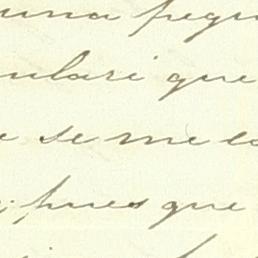 una pequ
ulari que
e se me co
pues que